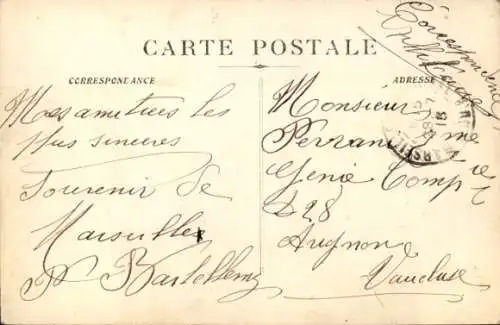 Correspondance
Militaire
CARTE POSTALE
CORRESPONDANCE
ADRESSE
Mes amitiées les
plus sincères
Souvenir de
Marseille
Bartellemy
Monsieur
Perrani
Génie Comp
28
Avignon
Vaucluse